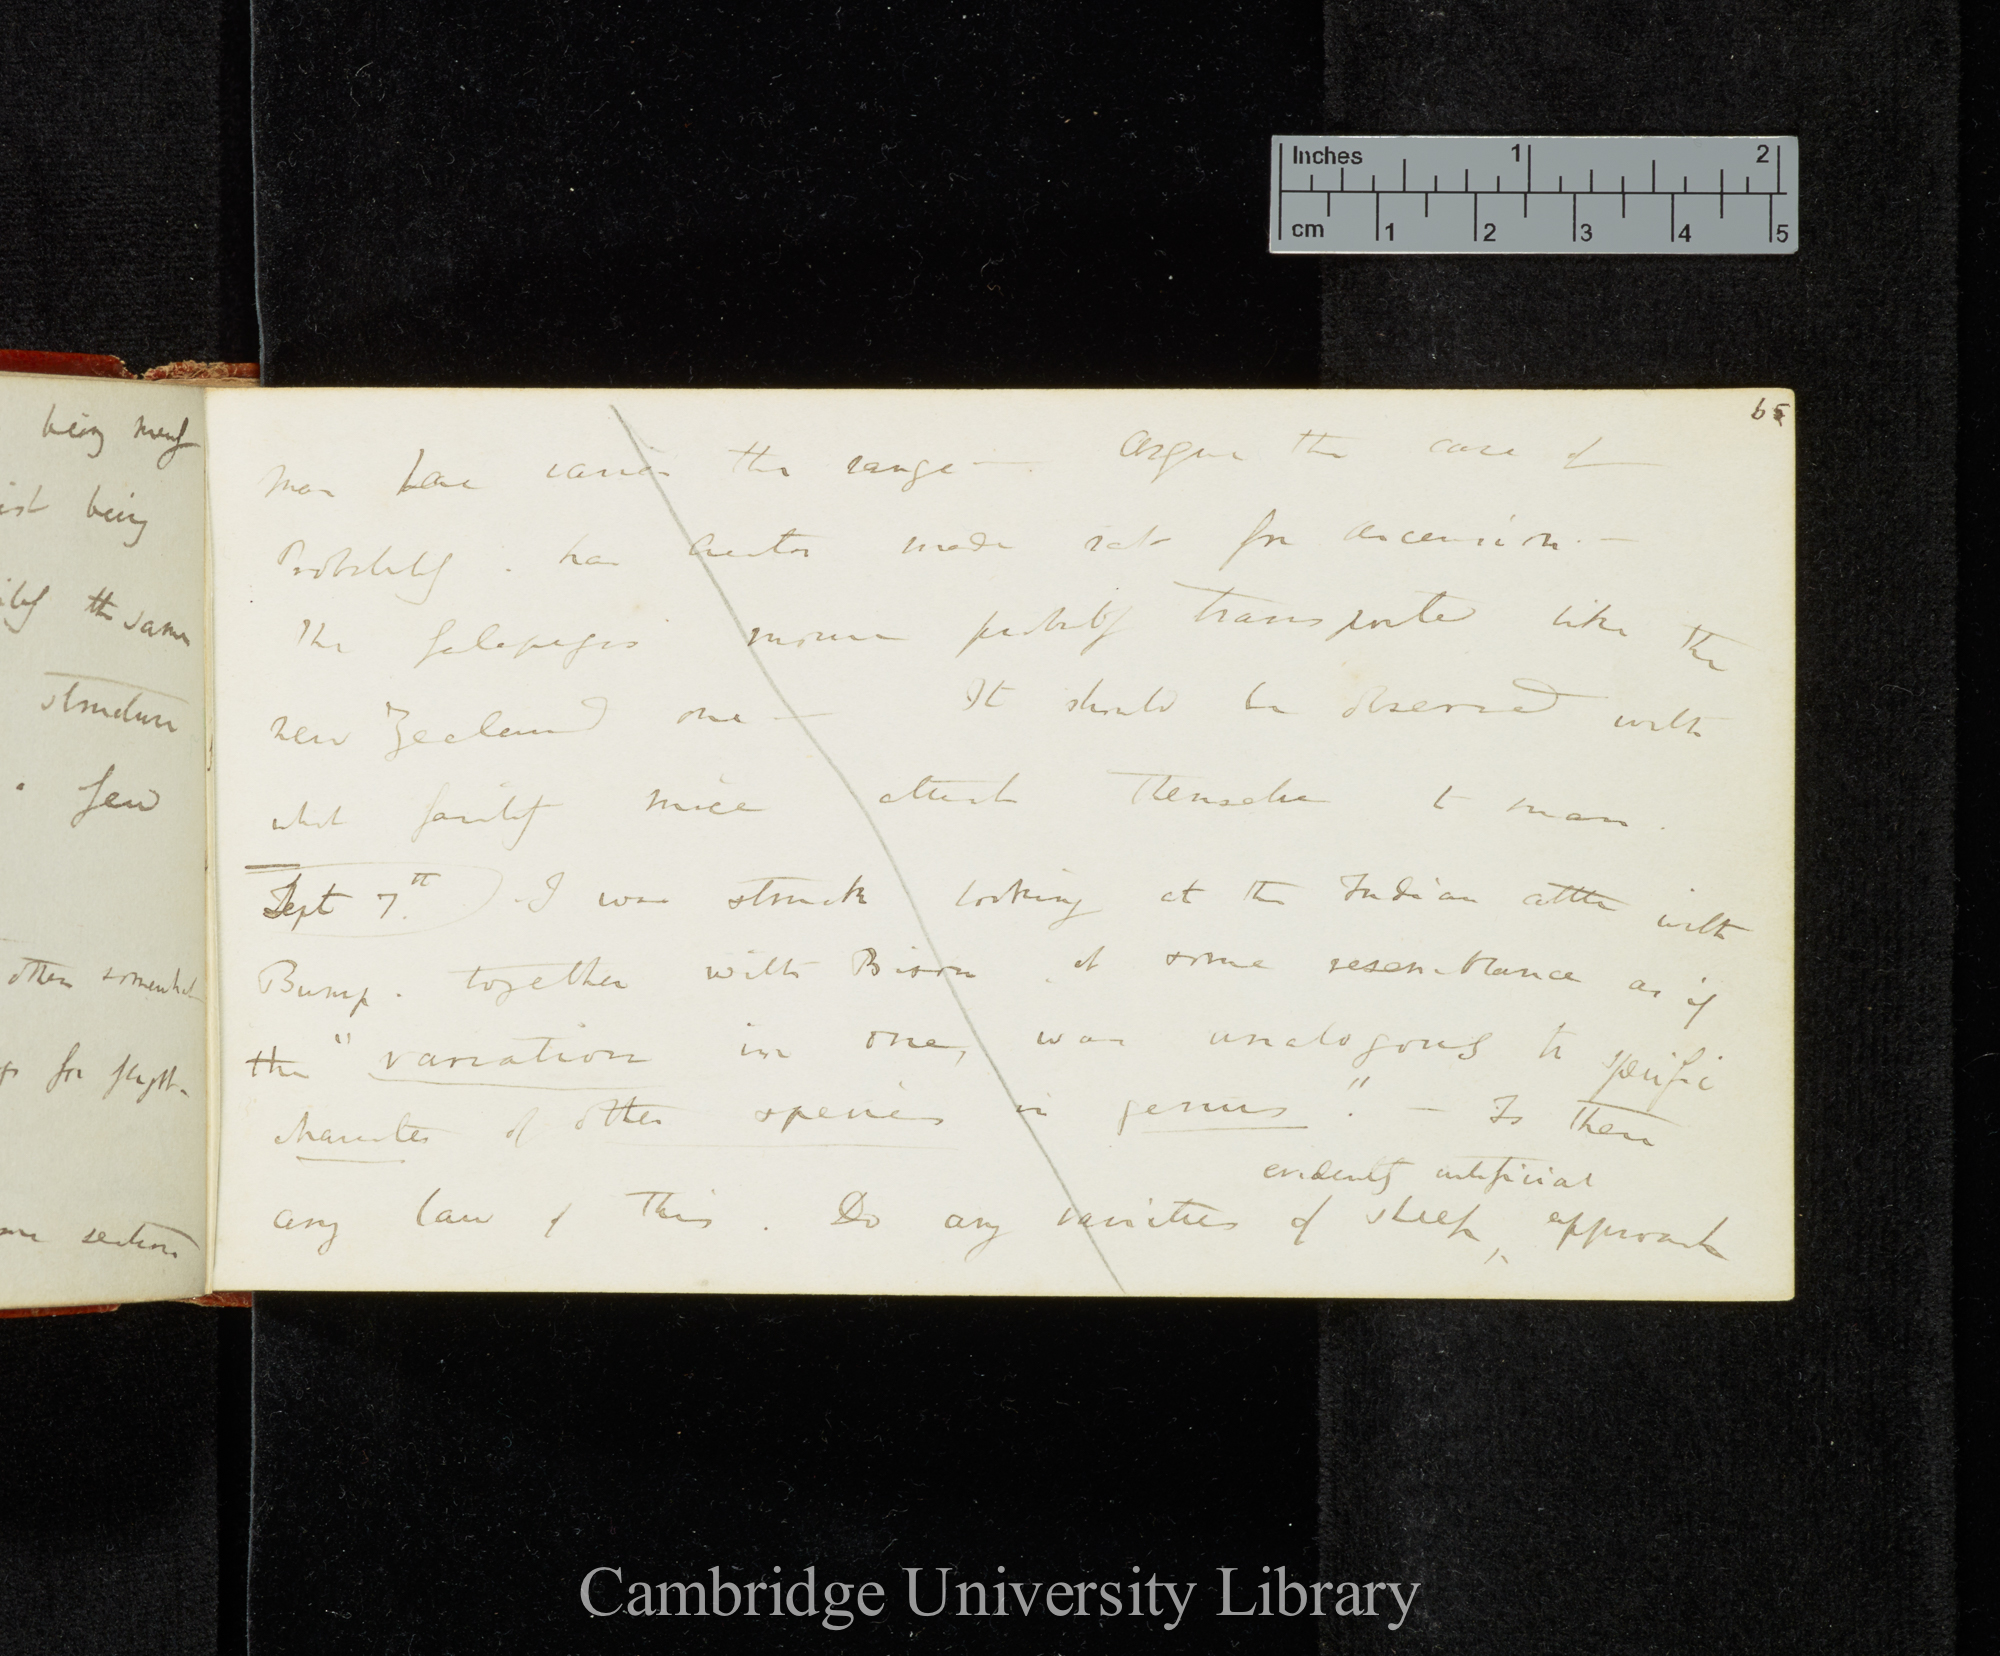 Inches 1 2
cm 1 2 3 4 5
65
being
ist being
the same
structure
few
other somewhat
for flight
section
man have varied the range — Argue the case of
Probability. has Creator made rat for Ascension. —
The Galapagos mouse probably transported like the
New Zealand one — It should be observed with
what facility mice attach themselves to man.
Sept 7th I was struck looking at the Indian cattle with
Bump. together with Bison. at some resemblance as if
the "variation in one, was analogous to specific
character of other species in genus". — Is there
evidently artificial
any law of this. Do any varieties of sheep, approach
Cambridge University Library